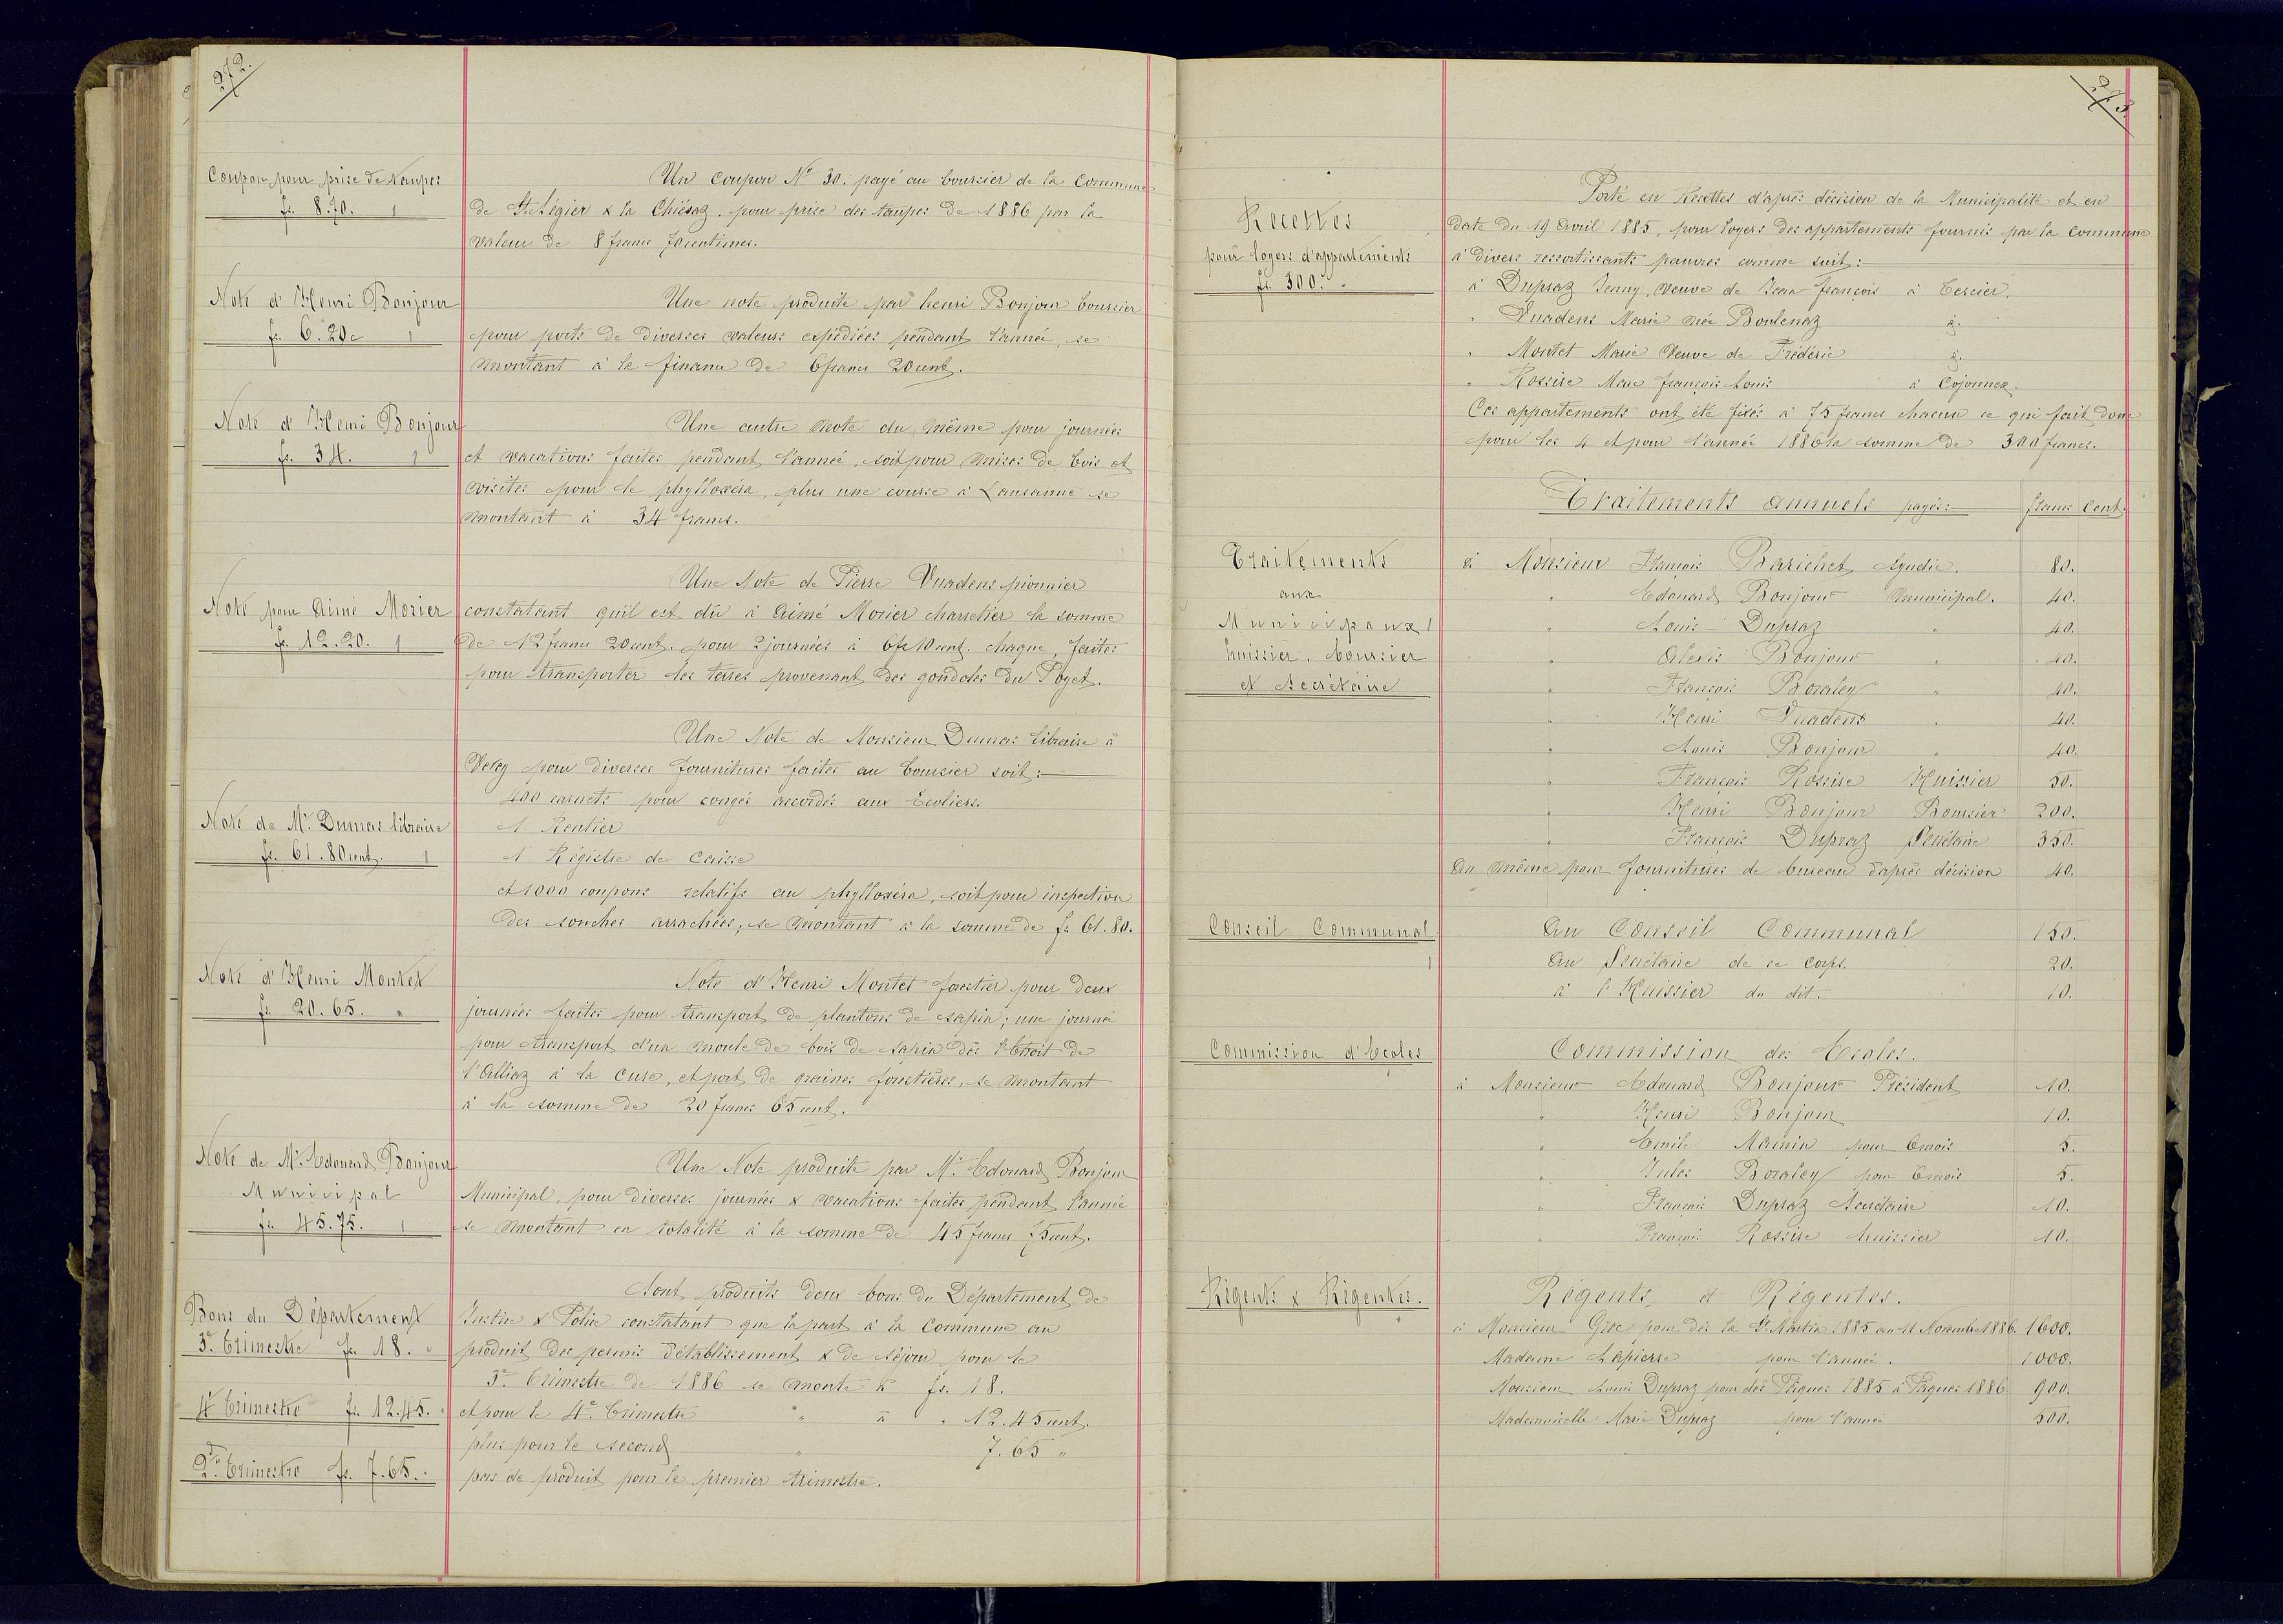 272.
Coupon pour prise de taupes
fr. 8.70.
Un Coupon No 30. payé au boursier de la Commune
de St Légier & la Chiésaz. pour prise des taupes de 1886 par la
valeur de 8 francs 70 centimes.
Note d'Henri Bonjour
fr. 6.20c
Une note produite par henri Bonjour boursier
pour ports de diverses valeurs expédiées pendant l'année, se
montant à la finance de 6 francs 20 cent.
Note d'Henri Bonjour
fr. 34.
Une autre note du même pour journées
et vacations faites pendant l'année, soit pour mises de bois et
visites pour le phylloxéra, plus une course à Lausanne se
montant à 34 francs.
Note pour Aimé Morier
fr. 12.20.
Une Note de Pierre Vuadens pionnier
constatant qu'il est dû à Aimé Morier charretier la somme
de 12 francs 20 cent. pour 2 journées à 6 fr 10 cent. chaque, faites
pour transporter les terres provenant des gondoles du Poyet.
Une Note de Monsieur Dumas libraire à
Vevey pour diverses fournitures faites au boursier soit:
400 carnets pour congés accordés aux Ecoliers.
Note de Mr Dumas libraire
fr. 61.80 cent.
1 Rentier
1 Régistre de Caisse
et 1000 coupons relatifs au phylloxéra, soit pour inspection
des souches arrachées, se montant à la somme de fr. 61.80.
Note d'Henri Montet
fr. 20.65. "
Note d'Henri Montet forestier pour deux
journées faites pour transport de plantons de sapin; une journée
pour transport d'un moule de bois de sapin dès l'Etroit de
l'Alliaz à la Cure, et port de graines forestières, se montant
à la somme de 20 francs 65 cent.
Note de Mr Edouard Bonjour
Municipal
fr. 45.75.
Une Note produite par Mr Edouard Bonjour
Municipal, pour diverses journées & vacations faites pendant l'année
se montant en totalité à la somme de 45 francs 75 cent.
Bons du Département
3e Trimestre fr. 18. "
4e Trimestre fr. 12.45. "
2d Trimestre fr. 7.65. "
Sont produits deux bons du Département de
Justice & Police constatant que la part à la Commune au
produit des permis d'établissement & de séjour pour le
3e Trimestre de 1886 se monte à fr. 18.
et pour le 4e Trimestre " à " 12.45 cent.
plus pour le second " 7.65 "
pas de produit pour le premier trimestre.
273.
Recettes
pour loyers d'appartements
fr. 300. "
Porté en Recettes d'après décision de la Municipalité et en
date du 19 Avril 1885, pour loyers des appartements fournis par la Commune
à divers ressortissants pauvres comme suit:
à Dupraz Jenny, veuve de Jean François à Tercier.
" Vuadens Marie née Boulenaz à.
" Montet Marie Veuve de Frédéric à.
" Rossire Marc François Louis à Cojonnex.
Ces appartements ont été fixés à 75 francs chacun ce qui fait donc
pour les 4 et pour l'année 1886 la somme de 300 francs.
Traitements annuels payés: francs Cent.
Traitements
aux
Municipaux
huissier, boursier
et secrétaire
à Monsieur François Barichet Syndic. 80.
" Edouard Bonjour Municipal. 40.
" Louis Dupraz " 40.
" Alexis Bonjour " 40.
" François Boraley " 40.
" Henri Vuadens " 40.
" Louis Bonjour " 40.
" François Rossire Huissier 50.
" Henri Bonjour Boursier 200.
" François Dupraz Secrétaire 350.
Au même pour fournitures de bureau d'après décision 40.
Conseil Communal
Au Conseil Communal 150.
Au Secrétaire de ce Corps. 20.
à l'Huissier du dit. 10.
Commission d'Ecoles
Commission des Ecoles.
à Monsieur Edouard Bonjour Président 10.
" Henri Bonjour 10.
" Emile Mamin pour 6 mois 5.
" Jules Boraley pour 6 mois 5.
" François Dupraz Secrétaire 10.
" François Rossire huissier 10.
Régents & Régentes.
Régents et Régentes.
à Monsieur Grec pour dès la St Martin 1885 au 11 Novembre 1886. 1600.
Madame Lapierre pour l'année. 1000.
Monsieur Louis Dupraz pour dès Pâques 1885 à Pâques 1886 900.
Mademoiselle Marie Dupraz pour l'année 500.